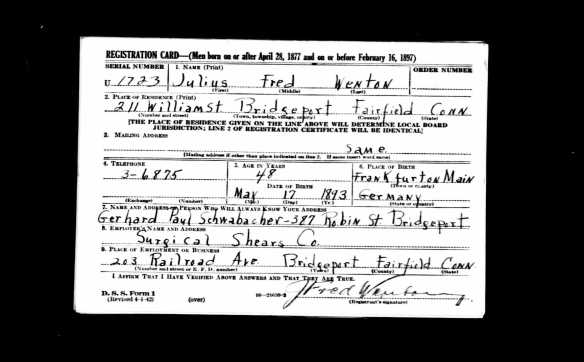 REGISTRATION CARD—(Men born on or after April 28, 1877 and on or before February 16, 1897)
SERIAL NUMBER 1. NAME (Print) ORDER NUMBER
U 1723 Julius Fred Wenton
(First) (Middle) (Last)
2. PLACE OF RESIDENCE (Print)
211 William St Bridgeport Fairfield Conn
(Number and street) (Town, township, village, or city) (County) (State)
[THE PLACE OF RESIDENCE GIVEN ON THE LINE ABOVE WILL DETERMINE LOCAL BOARD
JURISDICTION; LINE 2 OF REGISTRATION CERTIFICATE WILL BE IDENTICAL]
3. MAILING ADDRESS
Same
[Mailing address if other than place indicated on line 2. If same insert word same]
4. TELEPHONE 5. AGE IN YEARS 6. PLACE OF BIRTH
3-6875 48 Frankfurt on Main
DATE OF BIRTH (Town or county)
May 17 1893 Germany
(Exchange) (Number) (Mo.) (Day) (Yr.) (State or country)
7. NAME AND ADDRESS OF PERSON WHO WILL ALWAYS KNOW YOUR ADDRESS
Gerhard Paul Schwabacher-387 Robin St Bridgeport
8. EMPLOYER'S NAME AND ADDRESS
Surgical Shears Co.
9. PLACE OF EMPLOYMENT OR BUSINESS
203 Railroad Ave Bridgeport Fairfield Conn
(Number and street or R. F. D. number) (Town) (County) (State)
I AFFIRM THAT I HAVE VERIFIED ABOVE ANSWERS AND THAT THEY ARE TRUE.
D. S. S. Form 1
(Revised 4-1-42) (over) (Registrant's signature)